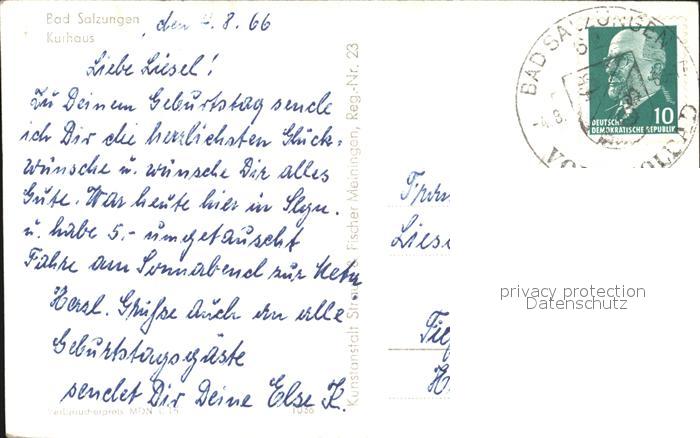 Bad Salzungen
Kurhaus
, den 4.8.66
Liebe Liesel!
Zu Deinem Geburtstag sende
ich Dir die herzlichsten Glück=
wünsche u. wünsche Dir alles
Gute. War heute hier in Slgn.
u. habe 5,- umgetauscht
Fahre am Sonnabend zur
Herzl. Grüße auch an alle
Geburtstagsgäste
sendet Dir Deine Else K.
Verbraucherpreis MDN
Fischer Meiningen, Reg.-Nr. 23
Kunstanstalt
BAD SALZUNGEN
10
DEUTSCHE
DEMOKRATISCHE REPUBLIK
Liese
privacy protection
Datenschutz